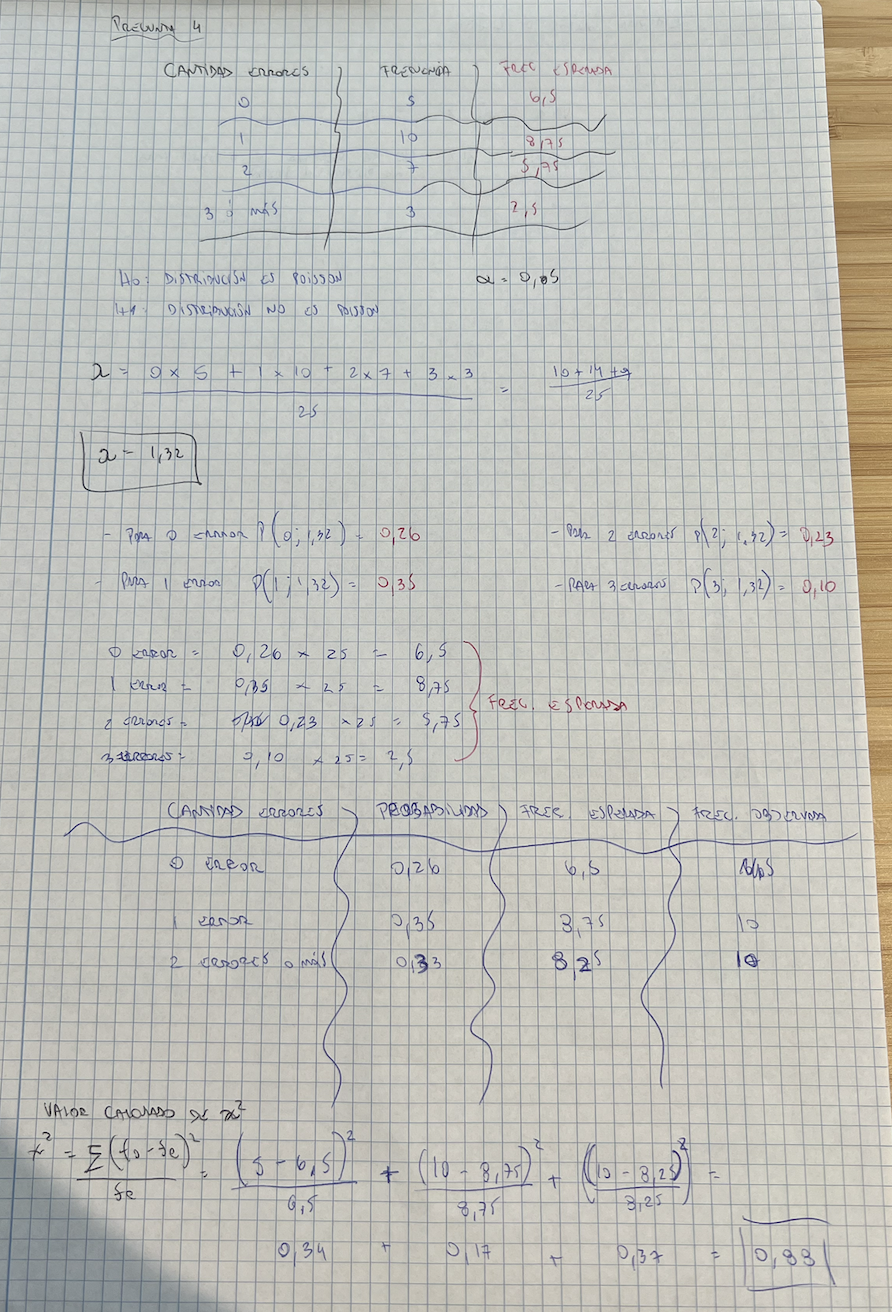 PREGUNTA 4
CANTIDAD ERRORES FRECUENCIA FREC ESPERADA
0 5 6,5
1 10 8,75
2 7 5,75
3 ó más 3 2,5
H0: DISTRIBUCIÓN ES POISSON α = 0,05
H1: DISTRIBUCIÓN NO ES POISSON
λ = 0 x 5 + 1 x 10 + 2 x 7 + 3 x 3 / 25 = 10 + 14 + 9 / 25
λ = 1,32
- PARA 0 ERROR P(0; 1,32) = 0,26 - PARA 2 ERRORES P(2; 1,32) = 0,23
- PARA 1 ERROR P(1; 1,32) = 0,35 - PARA 3 ERRORES P(3; 1,32) = 0,10
0 ERROR = 0,26 x 25 = 6,5
1 ERROR = 0,35 x 25 = 8,75
FREC. ESPERADA
2 ERRORES = 0,23 x 25 = 5,75
3 ERRORES = 0,10 x 25 = 2,5
CANTIDAD ERRORES PROBABILIDAD FREC. ESPERADA FREC. OBSERVADA
0 ERROR 0,26 6,5 5
1 ERROR 0,35 8,75 10
2 ERRORES o más 0,33 8,25 10
VALOR CALCULADO DE x²
x² = Σ(fo-fe)² / fe = (5 - 6,5)² / 6,5 + (10 - 8,75)² / 8,75 + ((10 - 8,25)² / 8,25) =
0,34 + 0,17 + 0,37 = 0,88